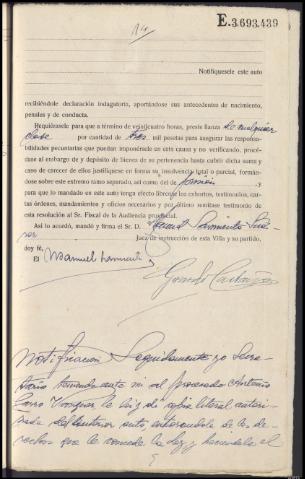 E.3.693.439
Notifíquesele este auto
recibiéndole declaración indagatoria, aportándose sus antecedentes de nacimiento,
penales y de conducta.
Requiérasele para que a término de veinticuatro horas, preste fianza de cualquier
clase por cantidad de tres mil pesetas para asegurar las responsabi-
lidades pecuniarias que puedan imponérsele en esta causa y no verificándolo, proce-
dase al embargo de y depósito de bienes de su pertenencia hasta cubrir dicha suma y
caso de carecer de ellos justifíquese en forma su insolvencia total o parcial, formán-
dose sobre este extremo ramo separado, así como del de prisión y
para que lo mandado en este auto tenga efecto líbrense los exhortos, testimonios, car-
tas órdenes, mandamientos y oficios necesarios y por último remítase testimonio de
esta resolución al Sr. Fiscal de la Audiencia provincial.
Así lo acordó, mandó y firma el Sr. D. Manuel Sarmiento Suá-
rez Juez de instrucción de esta Villa y su partido,
doy fé.
El Manuel Sarmiento
Notificación Seguidamente yo Secre-
tario teniendo ante mi al procesado Antonio
la leí y di copia literal autori-
zada del anterior auto, enterándole de los de-
rechos que le concede la Ley y haciéndole el